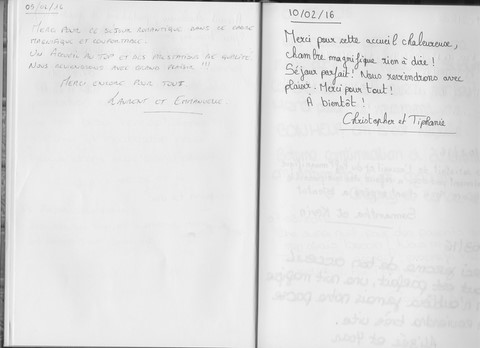 05/02/16
MERCI POUR CE SÉJOUR ROMANTIQUE DANS CE CADRE
MAGNIFIQUE ET CONFORTABLE.
UN ACCUEIL AU TOP ET DES PRESTATIONS DE QUALITÉ
NOUS REVIENDRONS AVEC GRAND PLAISIR !!!
MERCI ENCORE POUR TOUT
LAURENT ET EMMANUELLE
10/02/16
Merci pour cette accueil chaleureuse,
chambre magnifique rien à dire !
Séjour parfait ! Nous reviendrons avec
plaisir. Merci pour tout !
À bientôt !
Christopher et Tiphanie